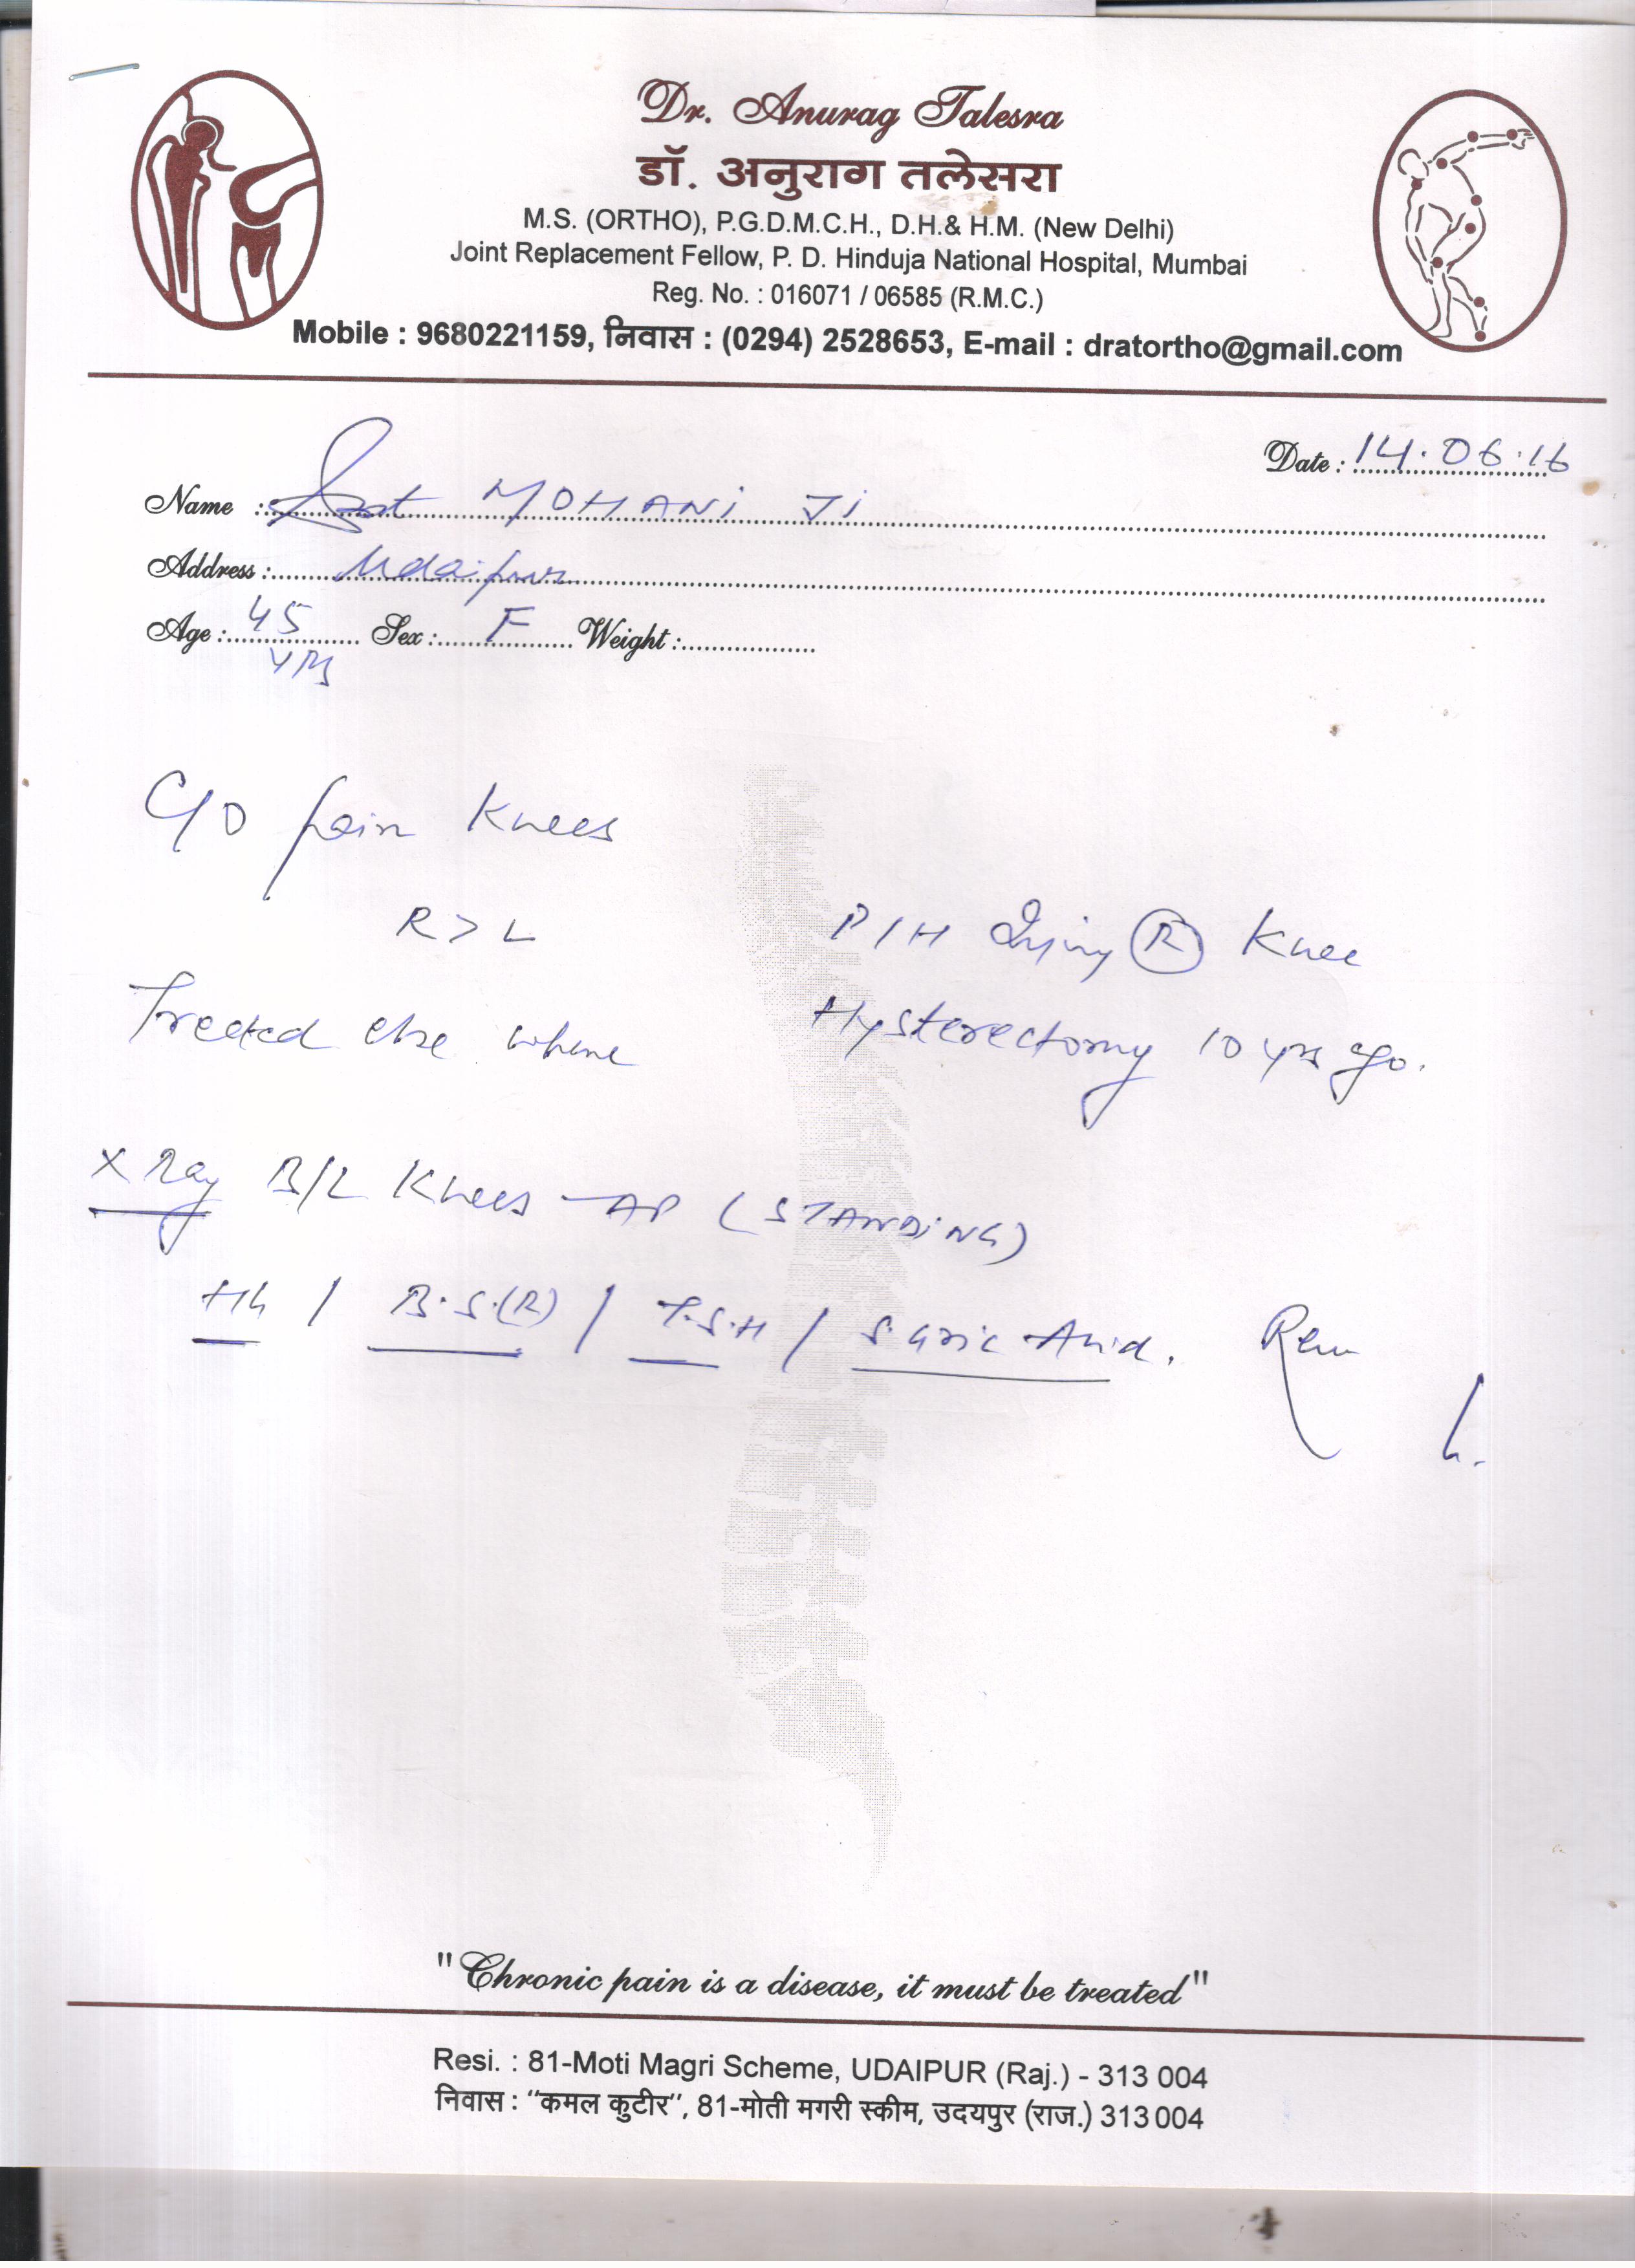 Dr. Anurag Talesra
डॉ. अनुराग तलेसरा
M.S. (ORTHO), P.G.D.M.C.H., D.H.& H.M. (New Delhi)
Joint Replacement Fellow, P. D. Hinduja National Hospital, Mumbai
Reg. No. : 016071 / 06585 (R.M.C.)
Mobile : 9680221159, निवास : (0294) 2528653, E-mail : dratortho@gmail.com
Date : 14.06.16
Name : MOHANI JI
Address : Udaipur
Age : 45 yrs Sex : F Weight :
C/O pain Knees
R > L
P/H Injury (R) Knee
Treated else where
Hysterectomy 10 yrs ago.
X Ray B/L Knees - AP (STANDING)
Hb / B.S.(R) / T.S.H / S. Uric Acid.
"Chronic pain is a disease, it must be treated"
Resi. : 81-Moti Magri Scheme, UDAIPUR (Raj.) - 313 004
निवास : "कमल कुटीर", 81-मोती मगरी स्कीम, उदयपुर (राज.) 313 004